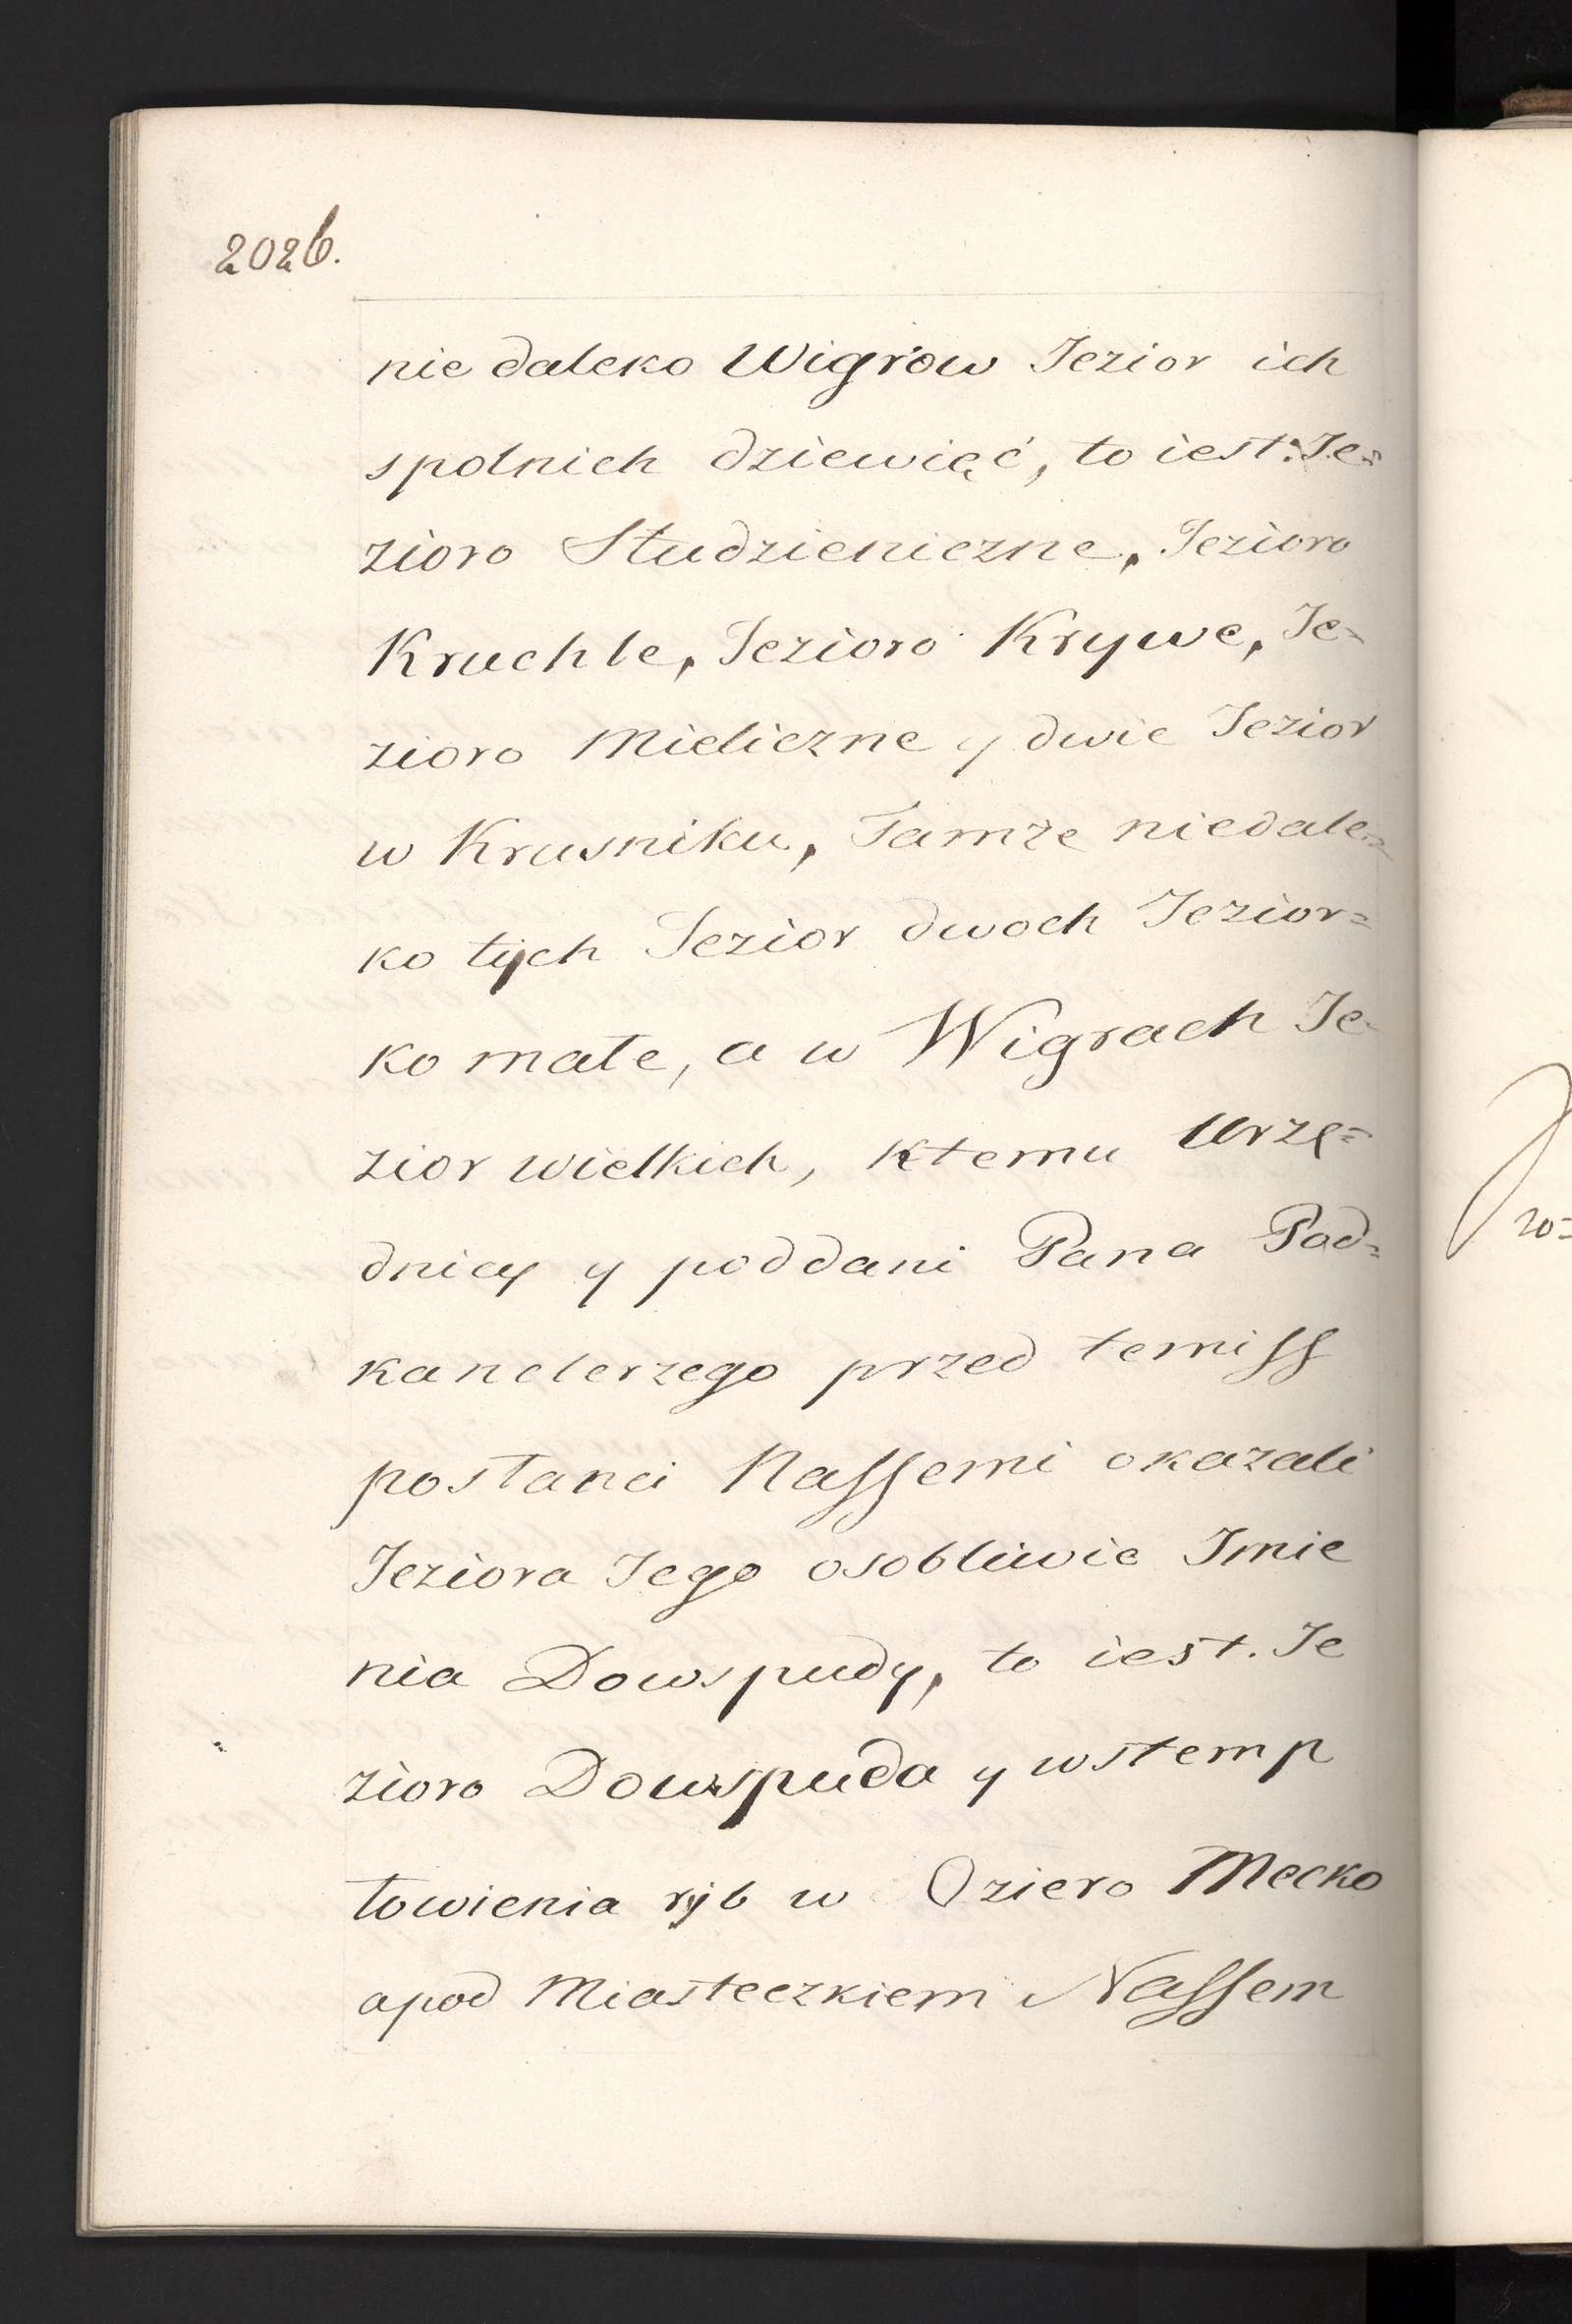 2026.
nie daleko Wigrow Jezior ich
spolnich dziewięć, to iest: Je=
zioro Studzieniczne, Jezioro
Kruchle, Jezioro Krywe, Je=
zioro Mieliczne y dwie Jezior
w Krusniku, Tamże niedale=
ko tych Jezior dwoch Jezior=
ko małe, a w Wigrach Je=
zior wielkich, Ktemu Urzę=
dnicy y poddani Pana Pod=
kanclerzego przed temiss
posłanci Nassemi okazali
Jeziora Jego osobliwie Imie
nia Dowspudy, to iest. Je
zioro Dowspuda y wstemp
łowienia ryb w Oziero Mecko
apod Miasteczkiem Nassem
ro=